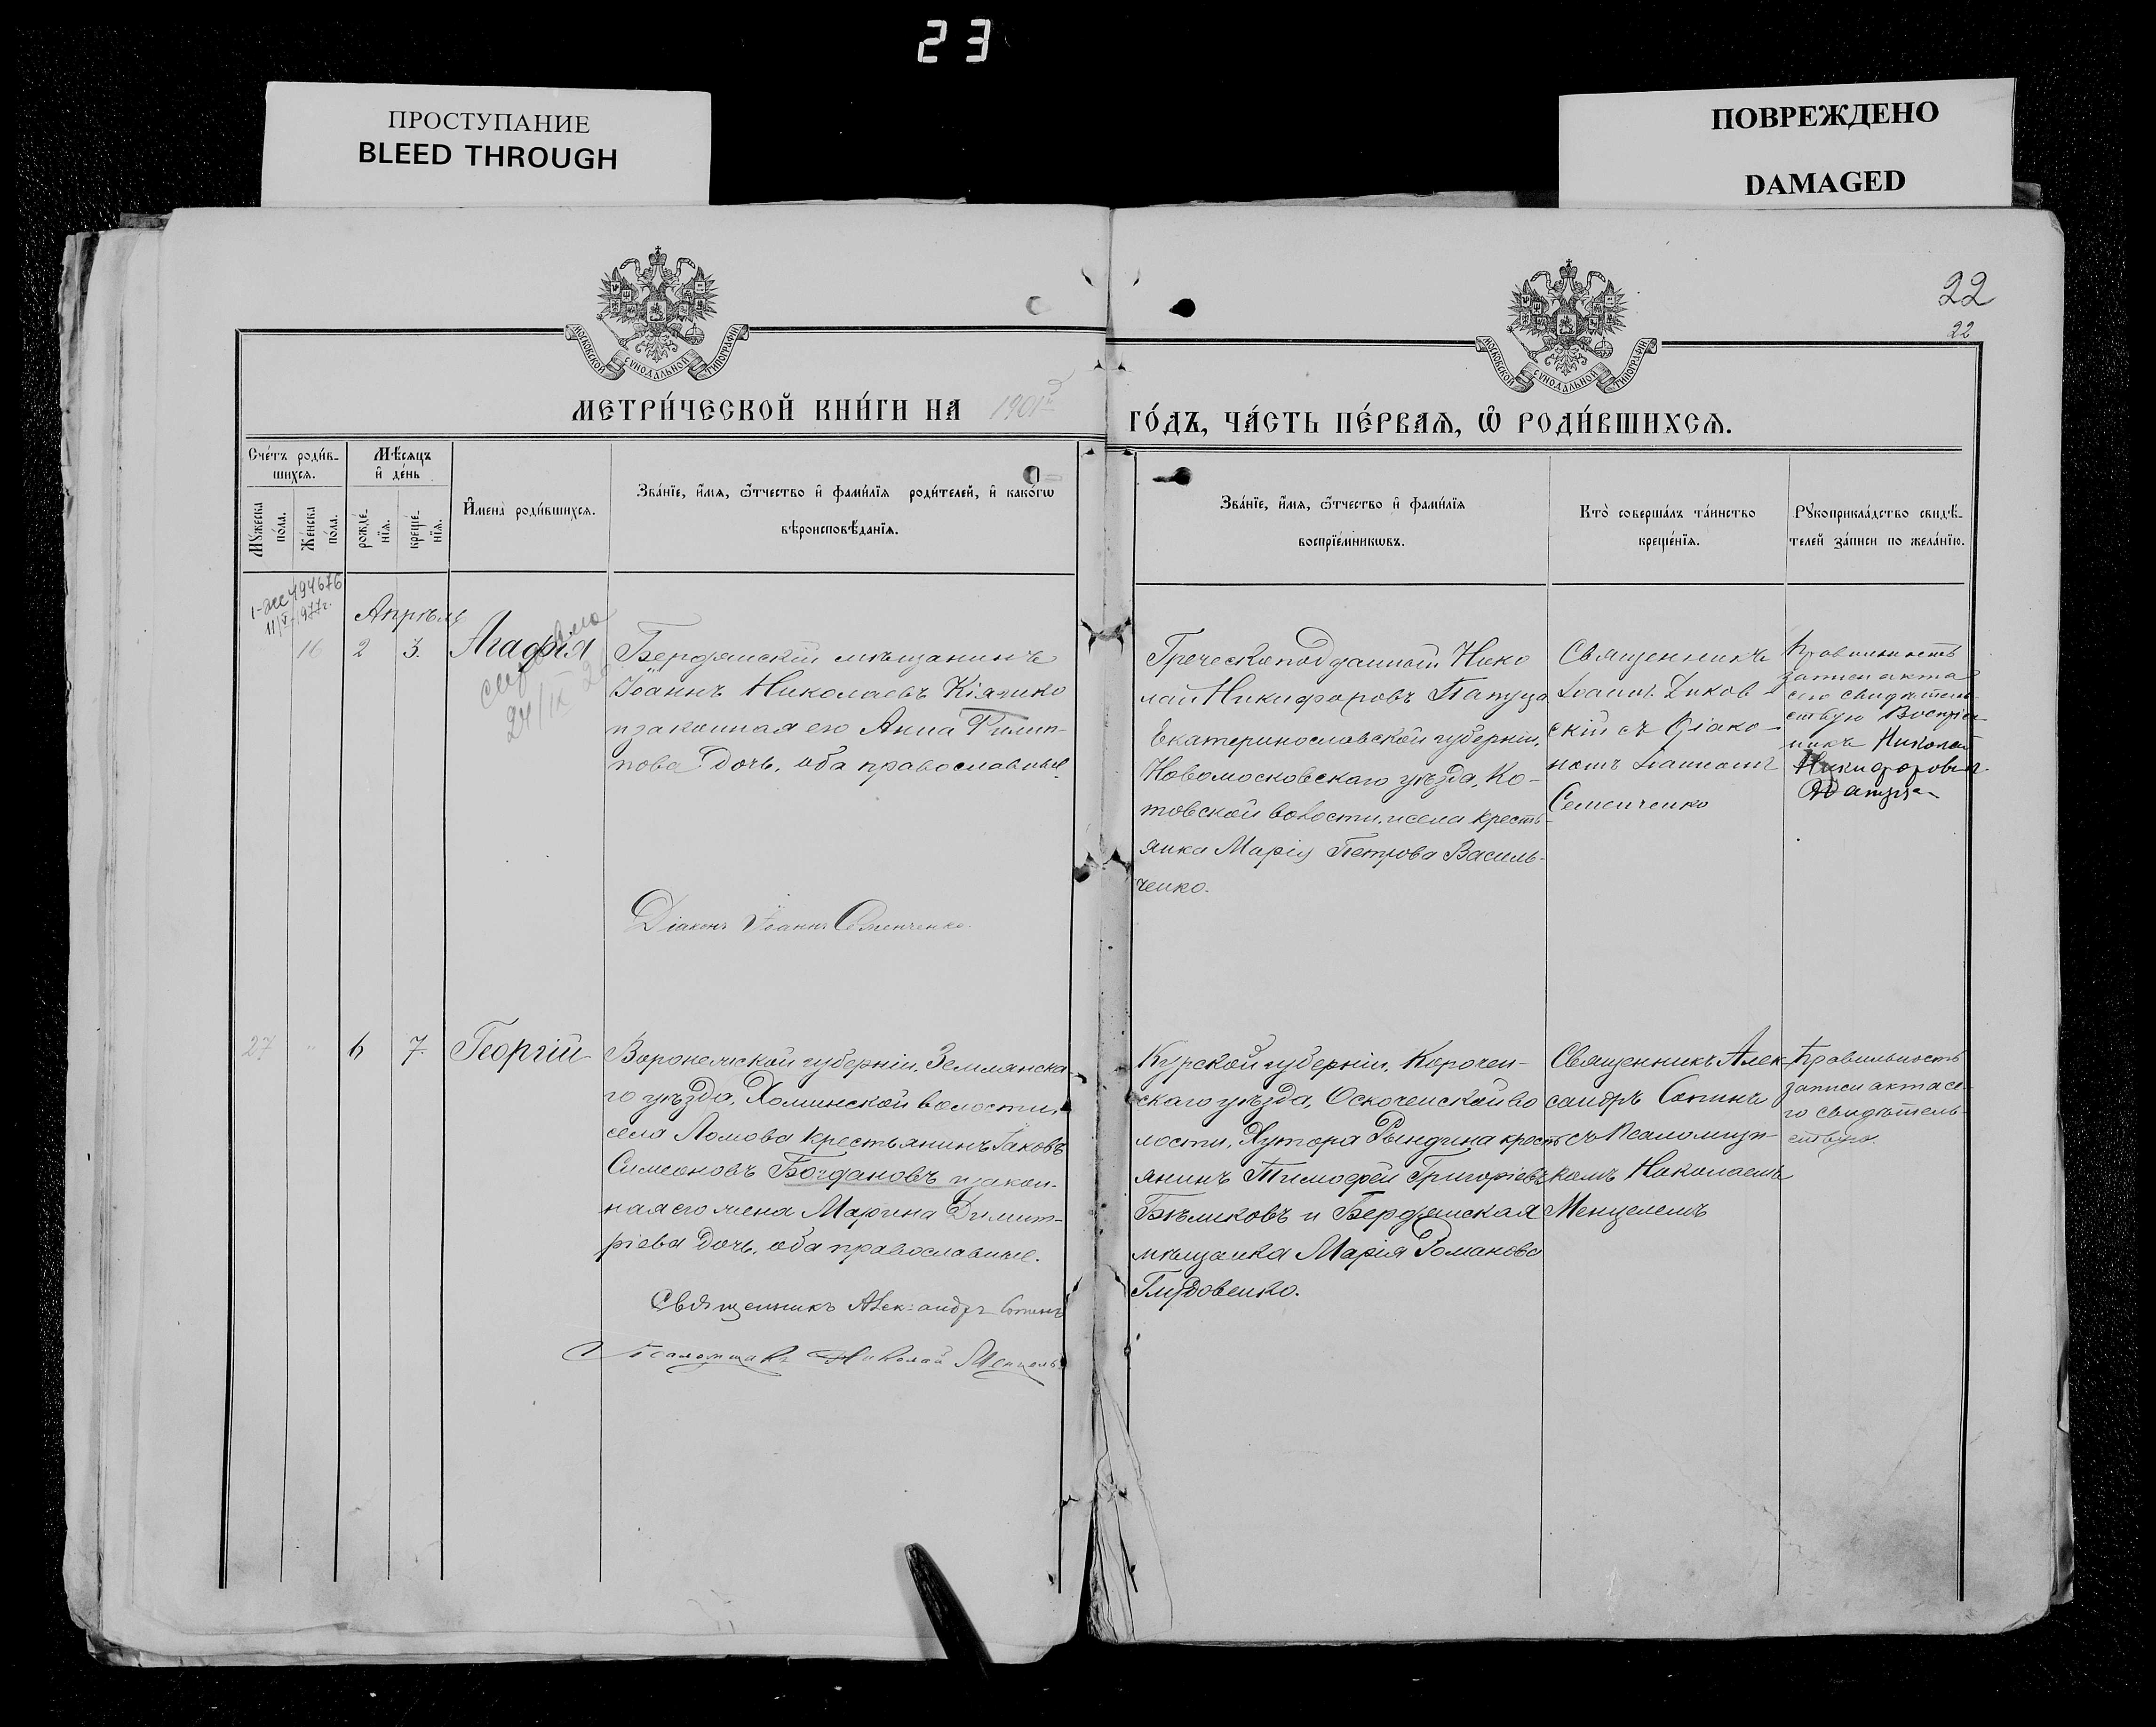 23
ПРОСТУПАНИЕ
BLEED THROUGH
ПОВРЕЖДЕНО
DAMAGED
22
22
МОСКОВСКОЙ СѴНОДАЛЬНОЙ ТИПОГРАФІИ
МОСКОВСКОЙ СѴНОДАЛЬНОЙ ТИПОГРАФІИ
МЕТРИ́ЧЕСКОЙ КНИ́ГИ НА 1901
ГО́ДЪ, ЧА́СТЬ ПЕ́РВАѦ, Ѡ҆ РОДИ́ВШИХСѦ.
Сче́тъ роди́в-
шихсѧ.
Мꙋ́жеска
по́ла.
Же́нска
по́ла.
Мѣ́сѧцъ
и҆ де́нь
рожде́-
нїѧ.
креще́-
нїѧ.
И҆мена̀ роди́вшихсѧ.
Зва́нїе, и҆́мѧ, ѻ҆́тчество и҆ фами́лїѧ роди́телей, и҆ како́гѡ
вѣроисповѣ́данїѧ.
Зва́нїе, и҆́мѧ, ѻ҆́тчество и҆ фами́лїѧ
воспрїе́мникѡвъ.
Кто̀ соверша́лъ та́инство
креще́нїѧ.
Рꙋкоприкла́дство свидѣ́-
телей за́писи по жела́нїю.
494676
11/V-1977г.
Апрѣль
16 2 3. Агафія
24/IX
Бердянскій мѣщанинъ
Іоаннъ Николаевъ Кіяшко
и законная его Анна Филип-
пова дочь, оба православные.
Діаконъ Іоаннъ Семенченко.
Греческоподданный Нико
лай Никифоровъ Папуза
Екатеринославской губерніи,
Новомосковскаго уѣзда, Ко-
товской волости, и села кресть-
янка Марія Петрова Василь-
ченко.
Священникъ
Іоаннъ
скій съ Діако-
номъ Іоанномъ
Семенченко
Правильность
записи акта
сего свидѣтель-
ствую Воспріем-
никъ Николай
Никифоровъ
27 " 6 7. Георгій
Воронежской губерніи, Землянска-
го уѣзда, волости,
села Ломова крестьянинъ Іаковъ
Симеоновъ Богдановъ и закон-
ная его жена Марина Димит-
ріева дочь, оба православные.
Священникъ Александръ Сопинъ
Псаломщикъ Николай Менцель
Курской губерніи, Корочан-
скаго уѣзда, во
лости, Хутора Рындина кресть
янинъ Тимофей Григоріевъ
Бѣликовъ и Бердянская
мѣщанка Марія Романова
Священникъ Алек-
сандръ Сопинъ
съ Псаломщи-
комъ Николаемъ
Менцелемъ
Правильность
записи акта се-
го свидѣтель-
ствую.